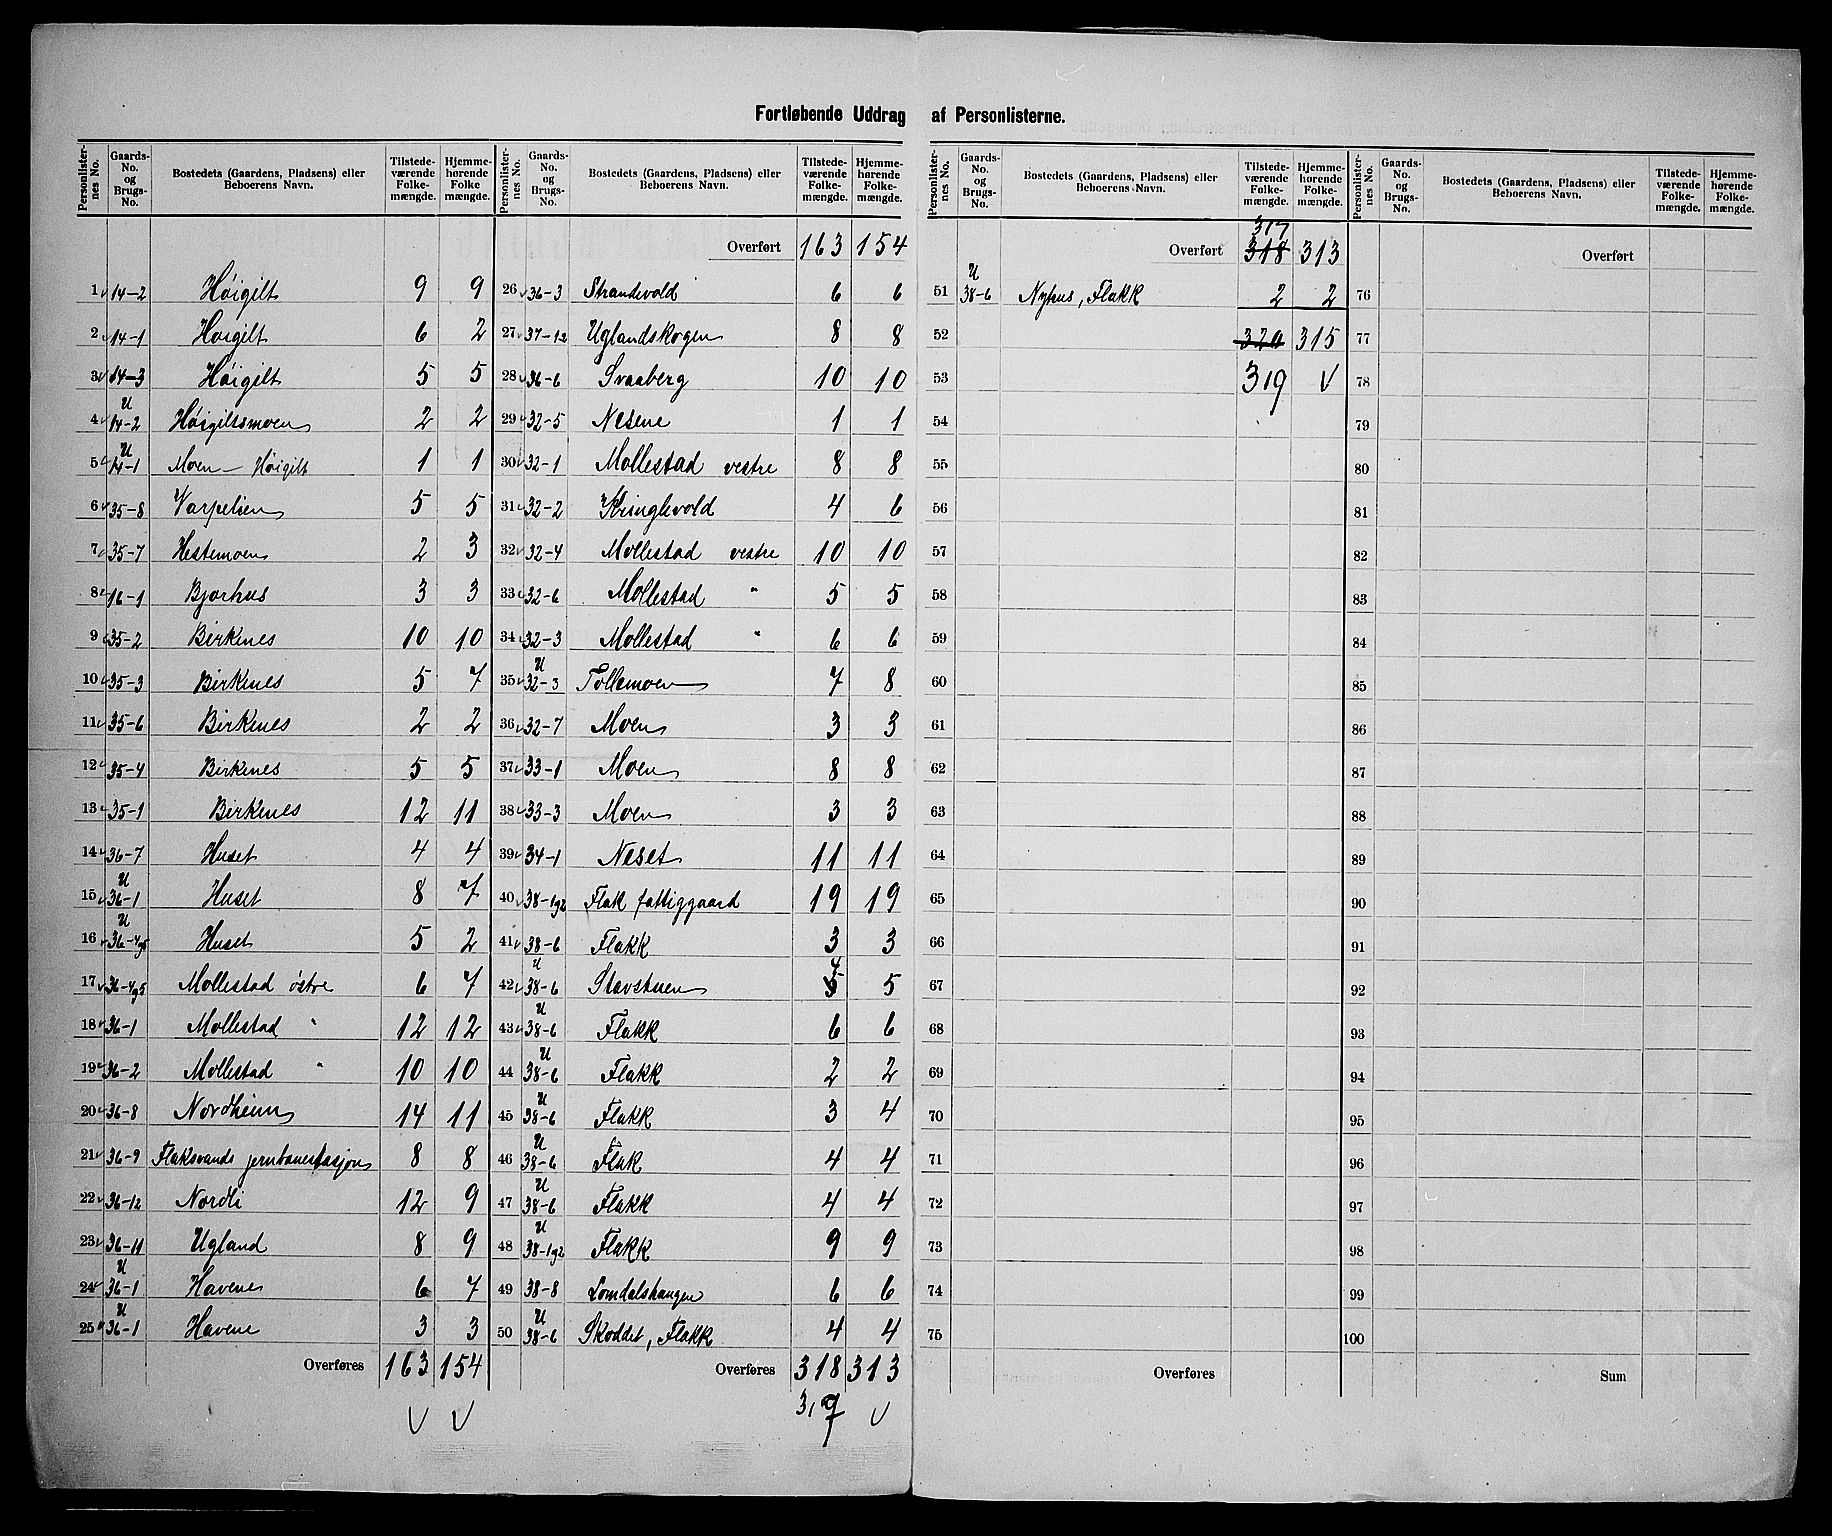 Fortløbende Uddrag af Personlisterne.
Personlister-nes No. | Gaards-No. og Brugs-No. | Bostedets (Gaardens, Pladsens) eller Beboerens Navn. | Tilstede-værende Folke-mængde. | Hjemme-hørende Folke mængde.
1 14-2 Høigilt 9 9
2 14-1 Høigilt 6 2
3 14-3 Høigilt 5 5
4 U 14-2 Høigiltsmoen 2 2
5 U 14-1 Moen - Høigilt 1 1
6 35-8 Varpelien 5 5
7 35-7 Hestemoen 2 3
8 16-1 Bjorhus 3 3
9 35-2 Birkenes 10 10
10 35-3 Birkenes 5 7
11 35-6 Birkenes 2 2
12 35-4 Birkenes 5 5
13 35-1 Birkenes 12 11
14 36-7 Huset 4 4
15 U 36-1 Huset 8 7
16 U 36-4g5 Huset 5 2
17 36-4g5 Mollestad østre 6 7
18 36-1 Mollestad " 12 12
19 36-2 Mollestad " 10 10
20 36-8 Nordheim 14 11
21 36-9 Flaksvands jernbanestasjon 8 8
22 36-12 Nordli 12 9
23 36-11 Ugland 8 9
24 U 36-1 Havene 6 7
25 U 36-1 Havene 3 3
Overføres 163 154
Personlister-nes No. | Gaards-No. og Brugs-No. | Bostedets (Gaardens, Pladsens) eller Beboerens Navn. | Tilstede-værende Folke-mængde. | Hjemme-hørende Folke-mængde.
Overført 163 154
26 36-3 Strandevold 6 6
27 37-12 Uglandskogen 8 8
28 36-6 Svaaberg 10 10
29 32-5 Nesene 1 1
30 32-1 Mollestad vestre 8 8
31 32-2 Kringlevold 4 6
32 32-4 Mollestad vestre 10 10
33 32-6 Mollestad " 5 5
34 32-3 Mollestad " 6 6
35 U 32-3 Tollemoen 7 8
36 32-7 Moen 3 3
37 33-1 Moen 8 8
38 33-3 Moen 3 3
39 34-1 Neset 11 11
40 38-1g2 Flak fattiggaard 19 19
41 38-6 Flakk 3 3
42 U 38-6 Stavstuen 4 5
43 U 38-6 Flakk 6 6
44 U 38-6 Flakk 2 2
45 U 38-6 Flakk 3 4
46 U 38-6 Flak 4 4
47 U 38-6 Flakk 4 4
48 U 38-1g2 Flakk 9 9
49 38-8 Lomdalshaugen 6 6
50 U 38-6 Skoddet, Flakk 4 4
Overføres 318 313
317
Personlister-nes No. | Gaards-No. og Brugs-No. | Bostedets (Gaardens, Pladsens) eller Beboerens Navn. | Tilstede-værende Folke-mængde. | Hjemme-hørende Folke-mængde.
317
Overført 318 313
51 U 38-6 Nyhus, Flakk 2 2
52 320 315
53 319 V
54
55
56
57
58
59
60
61
62
63
64
65
66
67
68
69
70
71
72
73
74
75
Overføres
Personlister-nes No. | Gaards-No. og Brugs-No. | Bostedets (Gaardens, Pladsens) eller Beboerens Navn. | Tilstede-værende Folke-mængde. | Hjemme-hørende Folke-mængde.
Overført
76
77
78
79
80
81
82
83
84
85
86
87
88
89
90
91
92
93
94
95
96
97
98
99
100
Sum